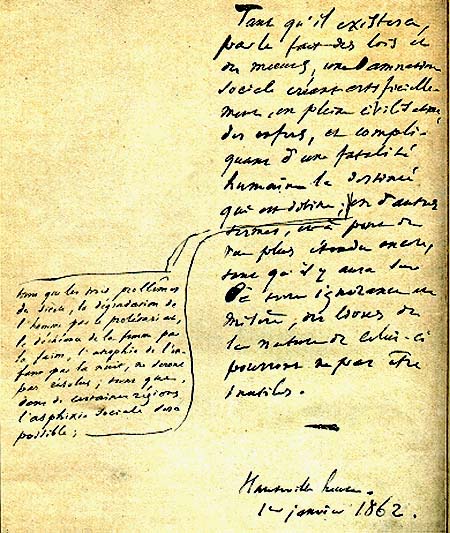 Tant qu'il existera,
par le fait des lois et
des mœurs, une damnation
sociale créant artificielle-
ment, en pleine civilisation,
des enfers, et compli-
quant d'une fatalité
humaine la destinée
qui est divine; en d'autres
termes, et à point de
vue plus étendu encore,
tant qu'il y aura sur
la terre ignorance et
misère, des livres de
la nature de celui-ci
pourront ne pas être
inutiles.
Hauteville house.
1er janvier 1862.
tant que les trois problèmes
du siècle, la dégradation de
l'homme par le prolétariat,
la déchéance de la femme par
la faim, l'atrophie de l'en-
fant par la nuit, ne seront
pas résolus; tant que,
dans de certaines régions,
l'asphyxie sociale sera
possible;